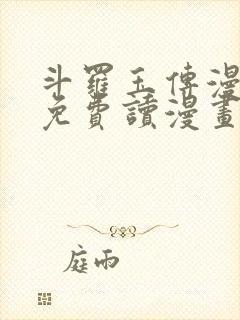 斗羅玉傳漫
免費讀漫畫
庭雨